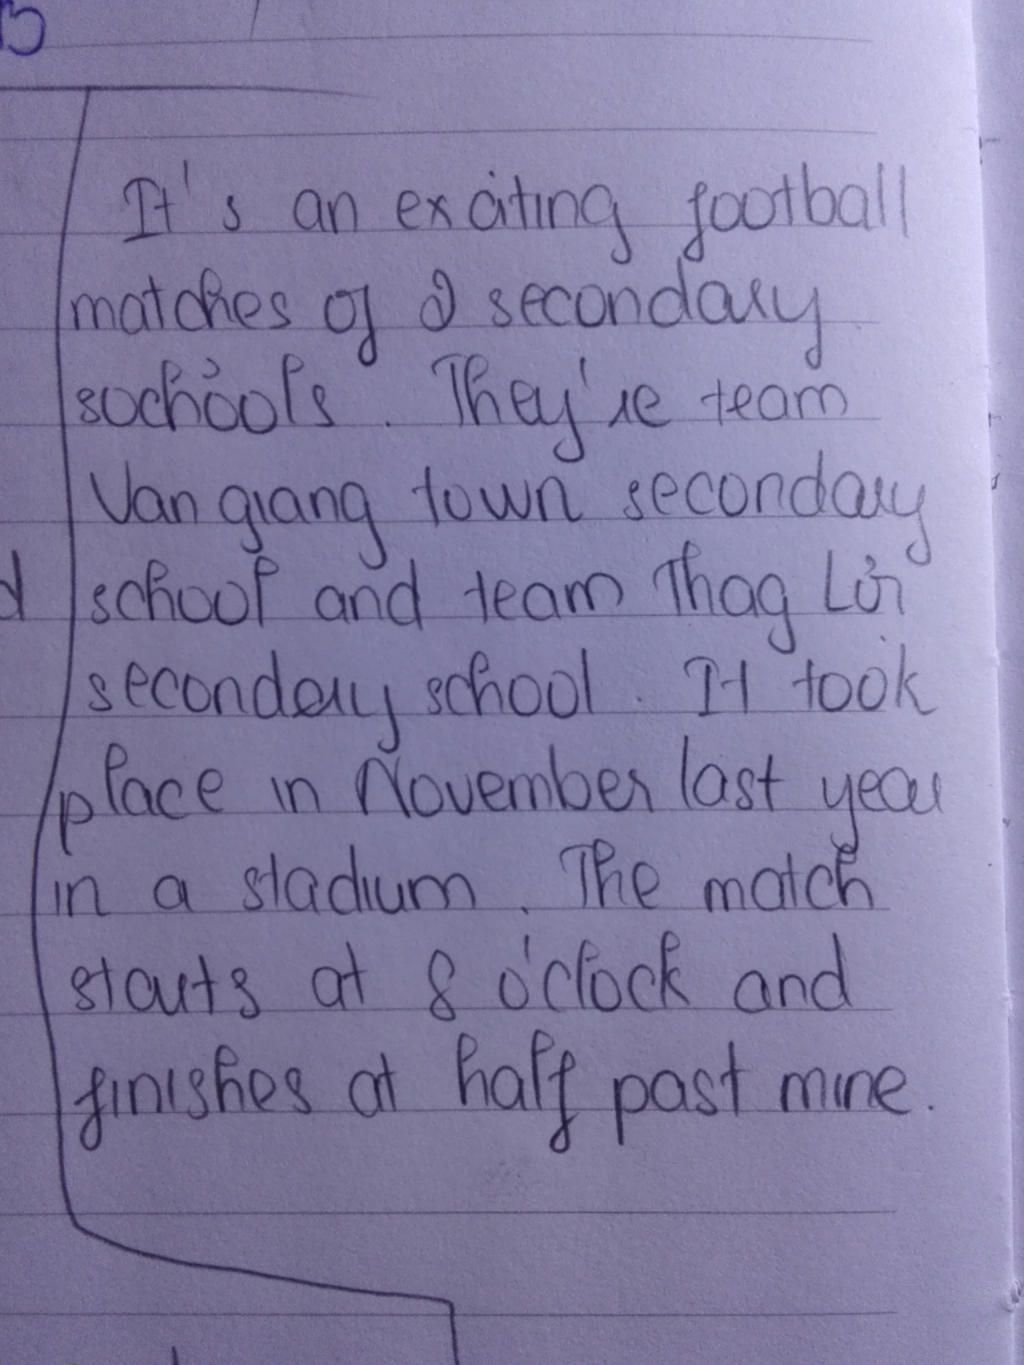 It's an exciting football
matches of 2 secondary
sochools. They're team
Van giang town secondary
school and team Thag Lợi
secondary school. It took
place in November last year
in a stadium. The match
starts at 8 o'clock and
finishes at half past mine.